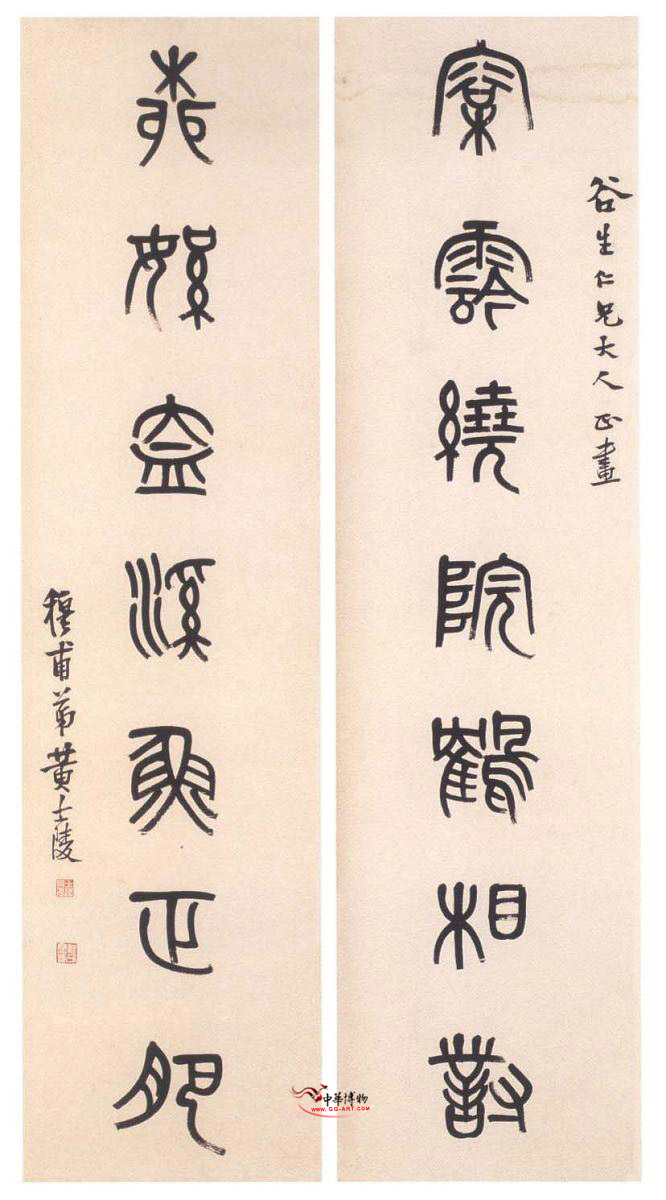 谷生仁兄大人正畫
霠繞院鶴相對
桺絮盈溪魚正肥
穆甫弟黃士陵
中華博物
WWW.GG-ART.COM